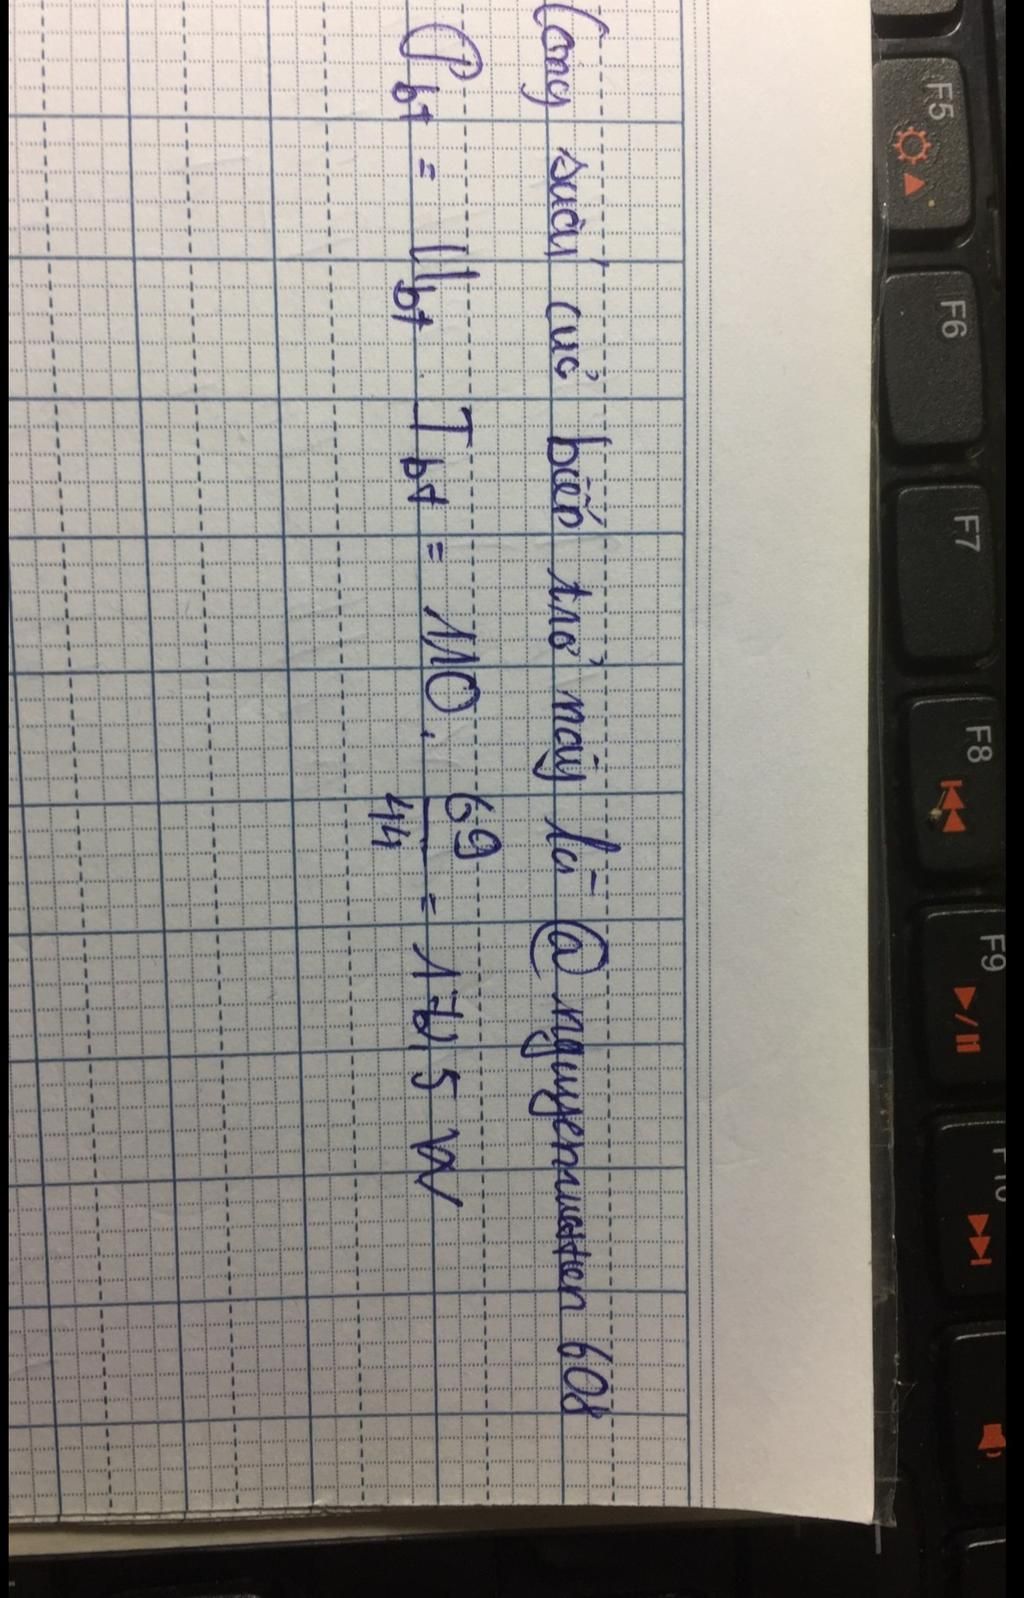 Công suất của biến trở này là @ nguyenvantien 608
P bt = U bt . I bt = 110 . 69/44 = 172,5 W
F5
F6
F7
F8
F9
F10